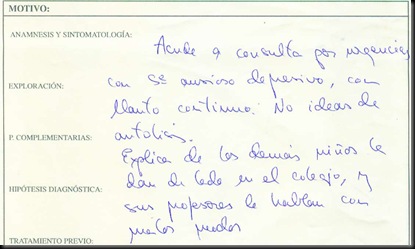 MOTIVO:
ANAMNESIS Y SINTOMATOLOGÍA:
Acude a consulta por urgencias
EXPLORACIÓN:
con Sº ansioso depresivo, con
llanto continuo. No ideas de
P. COMPLEMENTARIAS:
autolisis.
Explica de los demás niños le
HIPÓTESIS DIAGNÓSTICA:
dan de lado en el colegio, y
sus profesores le hablan con
TRATAMIENTO PREVIO:
malos modos